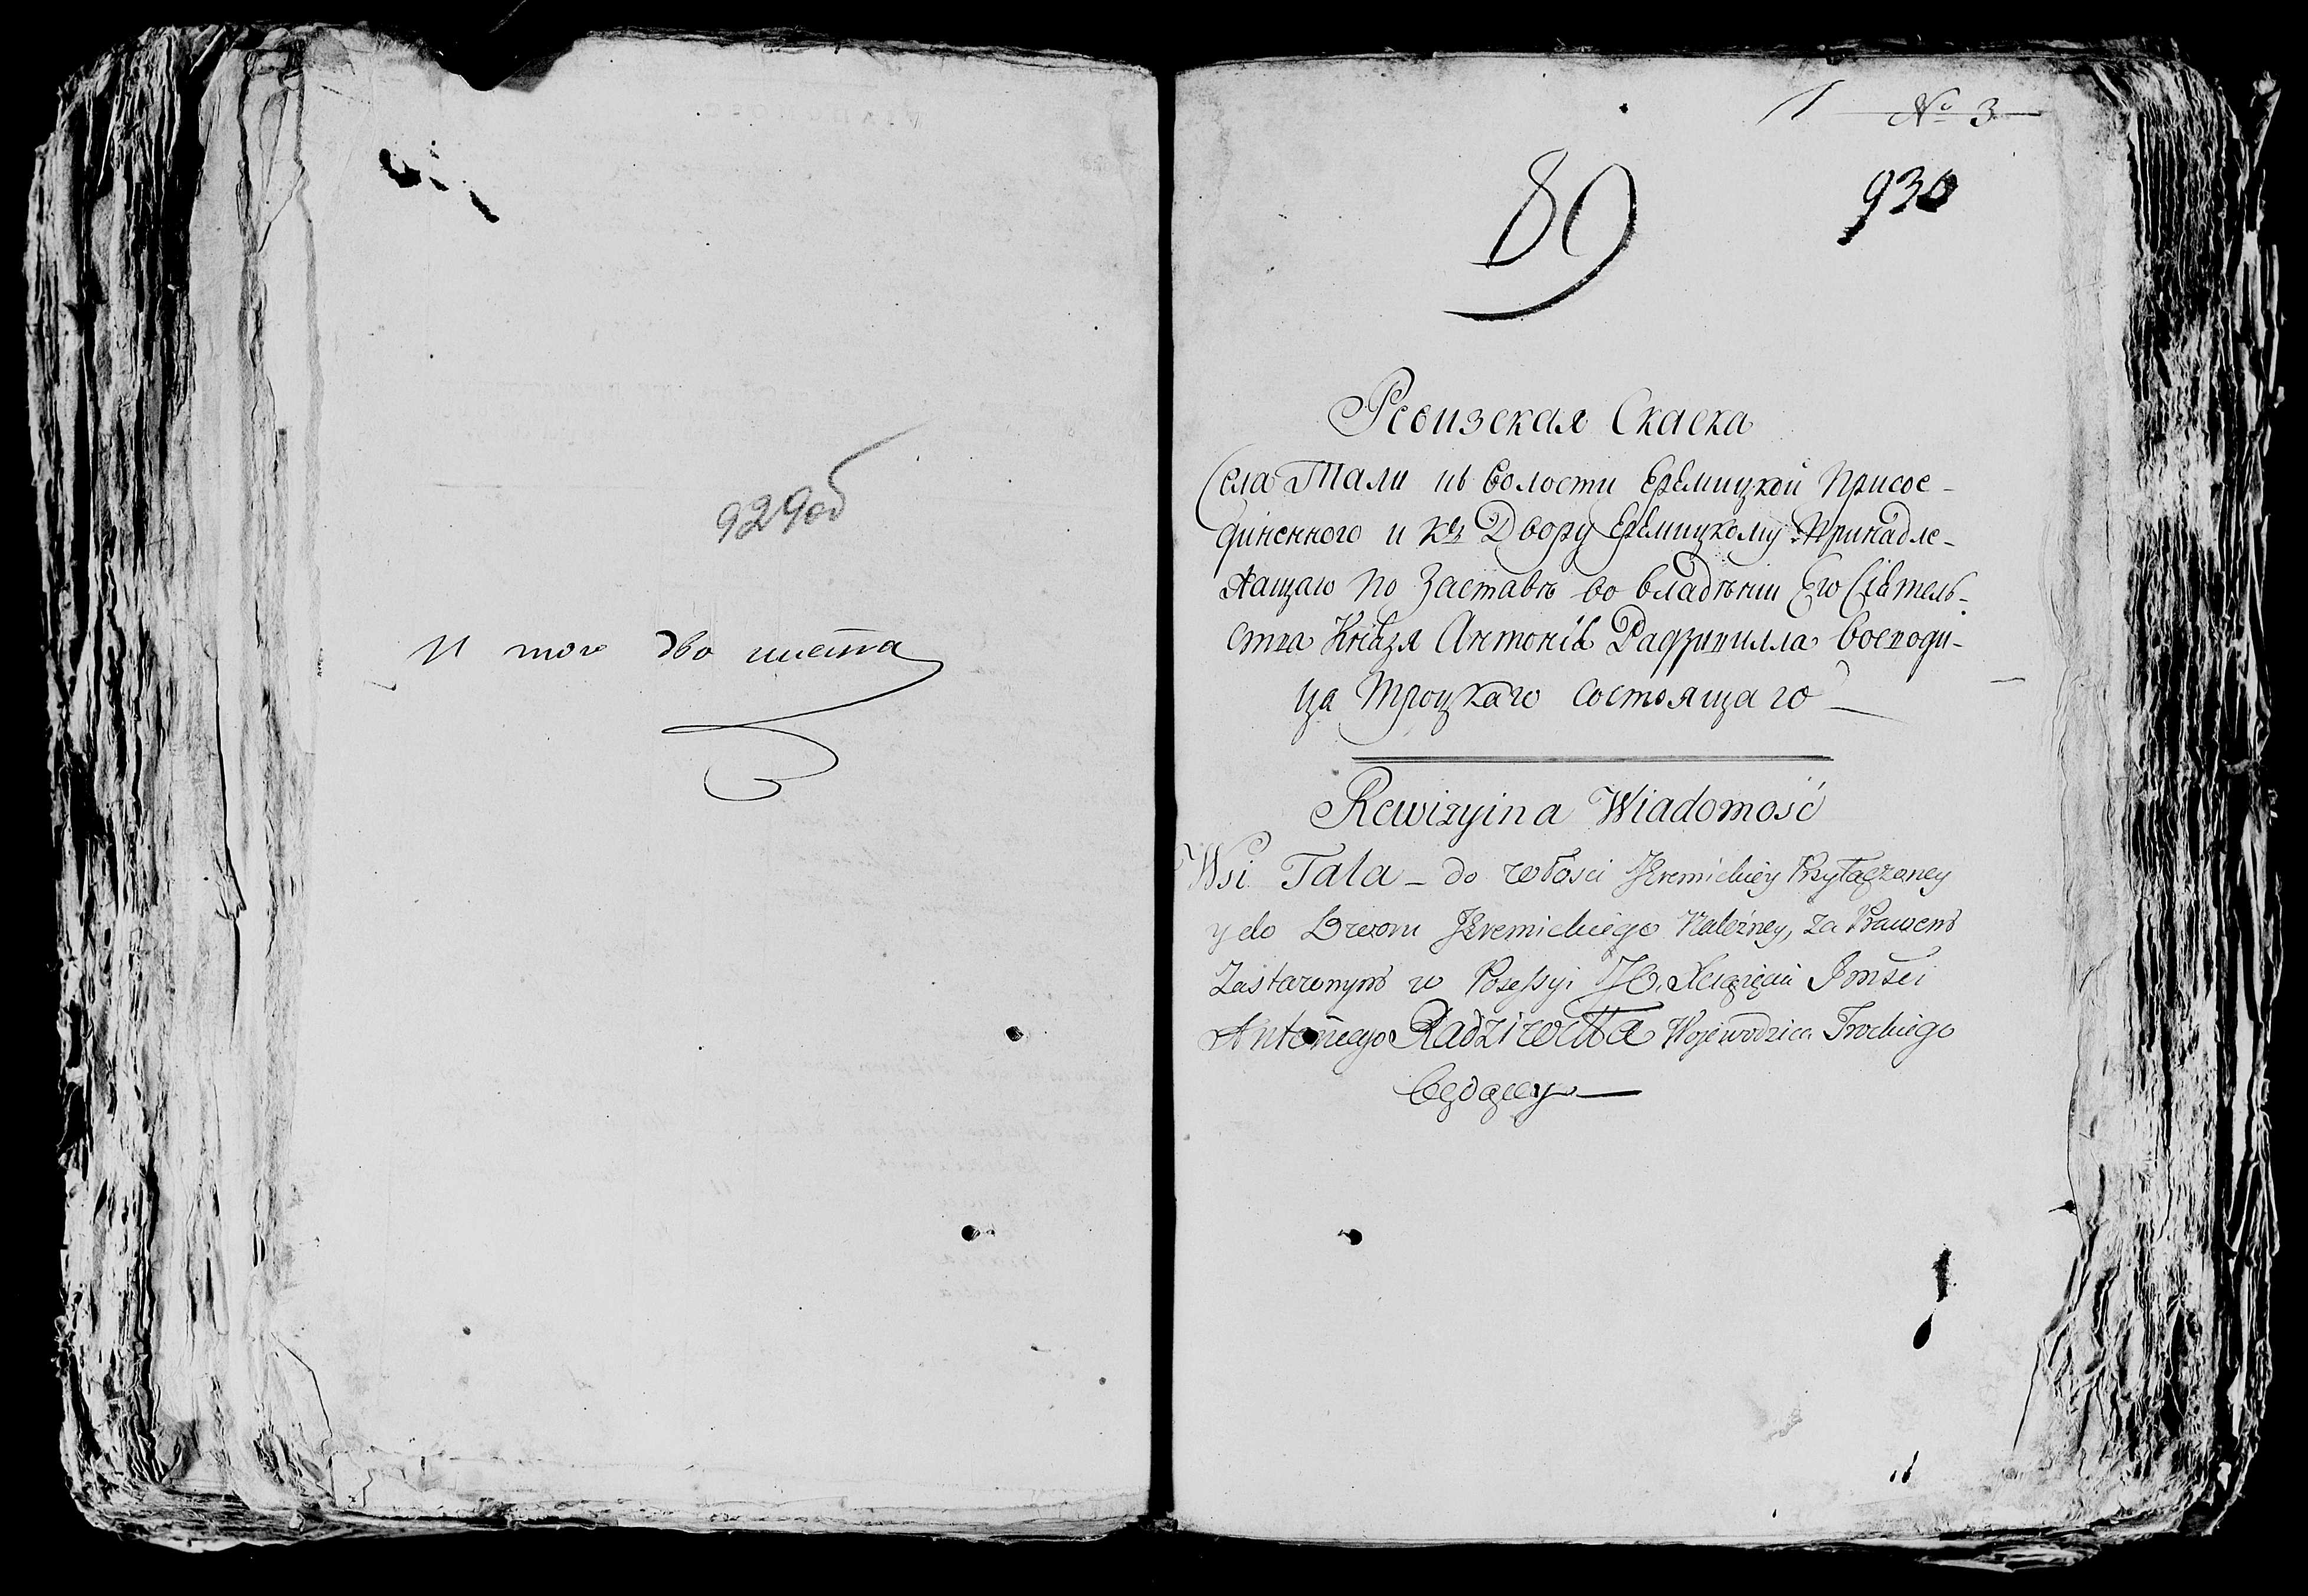 929об
И того два листа
1 № 3
930
89
Ревизская Скаска
Села Тали къ волости Еремицкой Присое-
диненного и къ Двору Еремицкому Принадле-
жащаго по Заставѣ во владѣнии Его Сіятель-
ства Князя Антонія Радзивилла Воеводи-
ца Троцкаго состоящаго
Rewizyina Wiadomość
Wsi Tala - do włości Jeremickiey Przyłączoney
y do Dworu Jeremickiego Należney, za Prawem
Zastawnym w Possessyi JO. Xiążęcia Jmści
Antoniego Radziwiłła Wojewodzica Trockiego
będącey